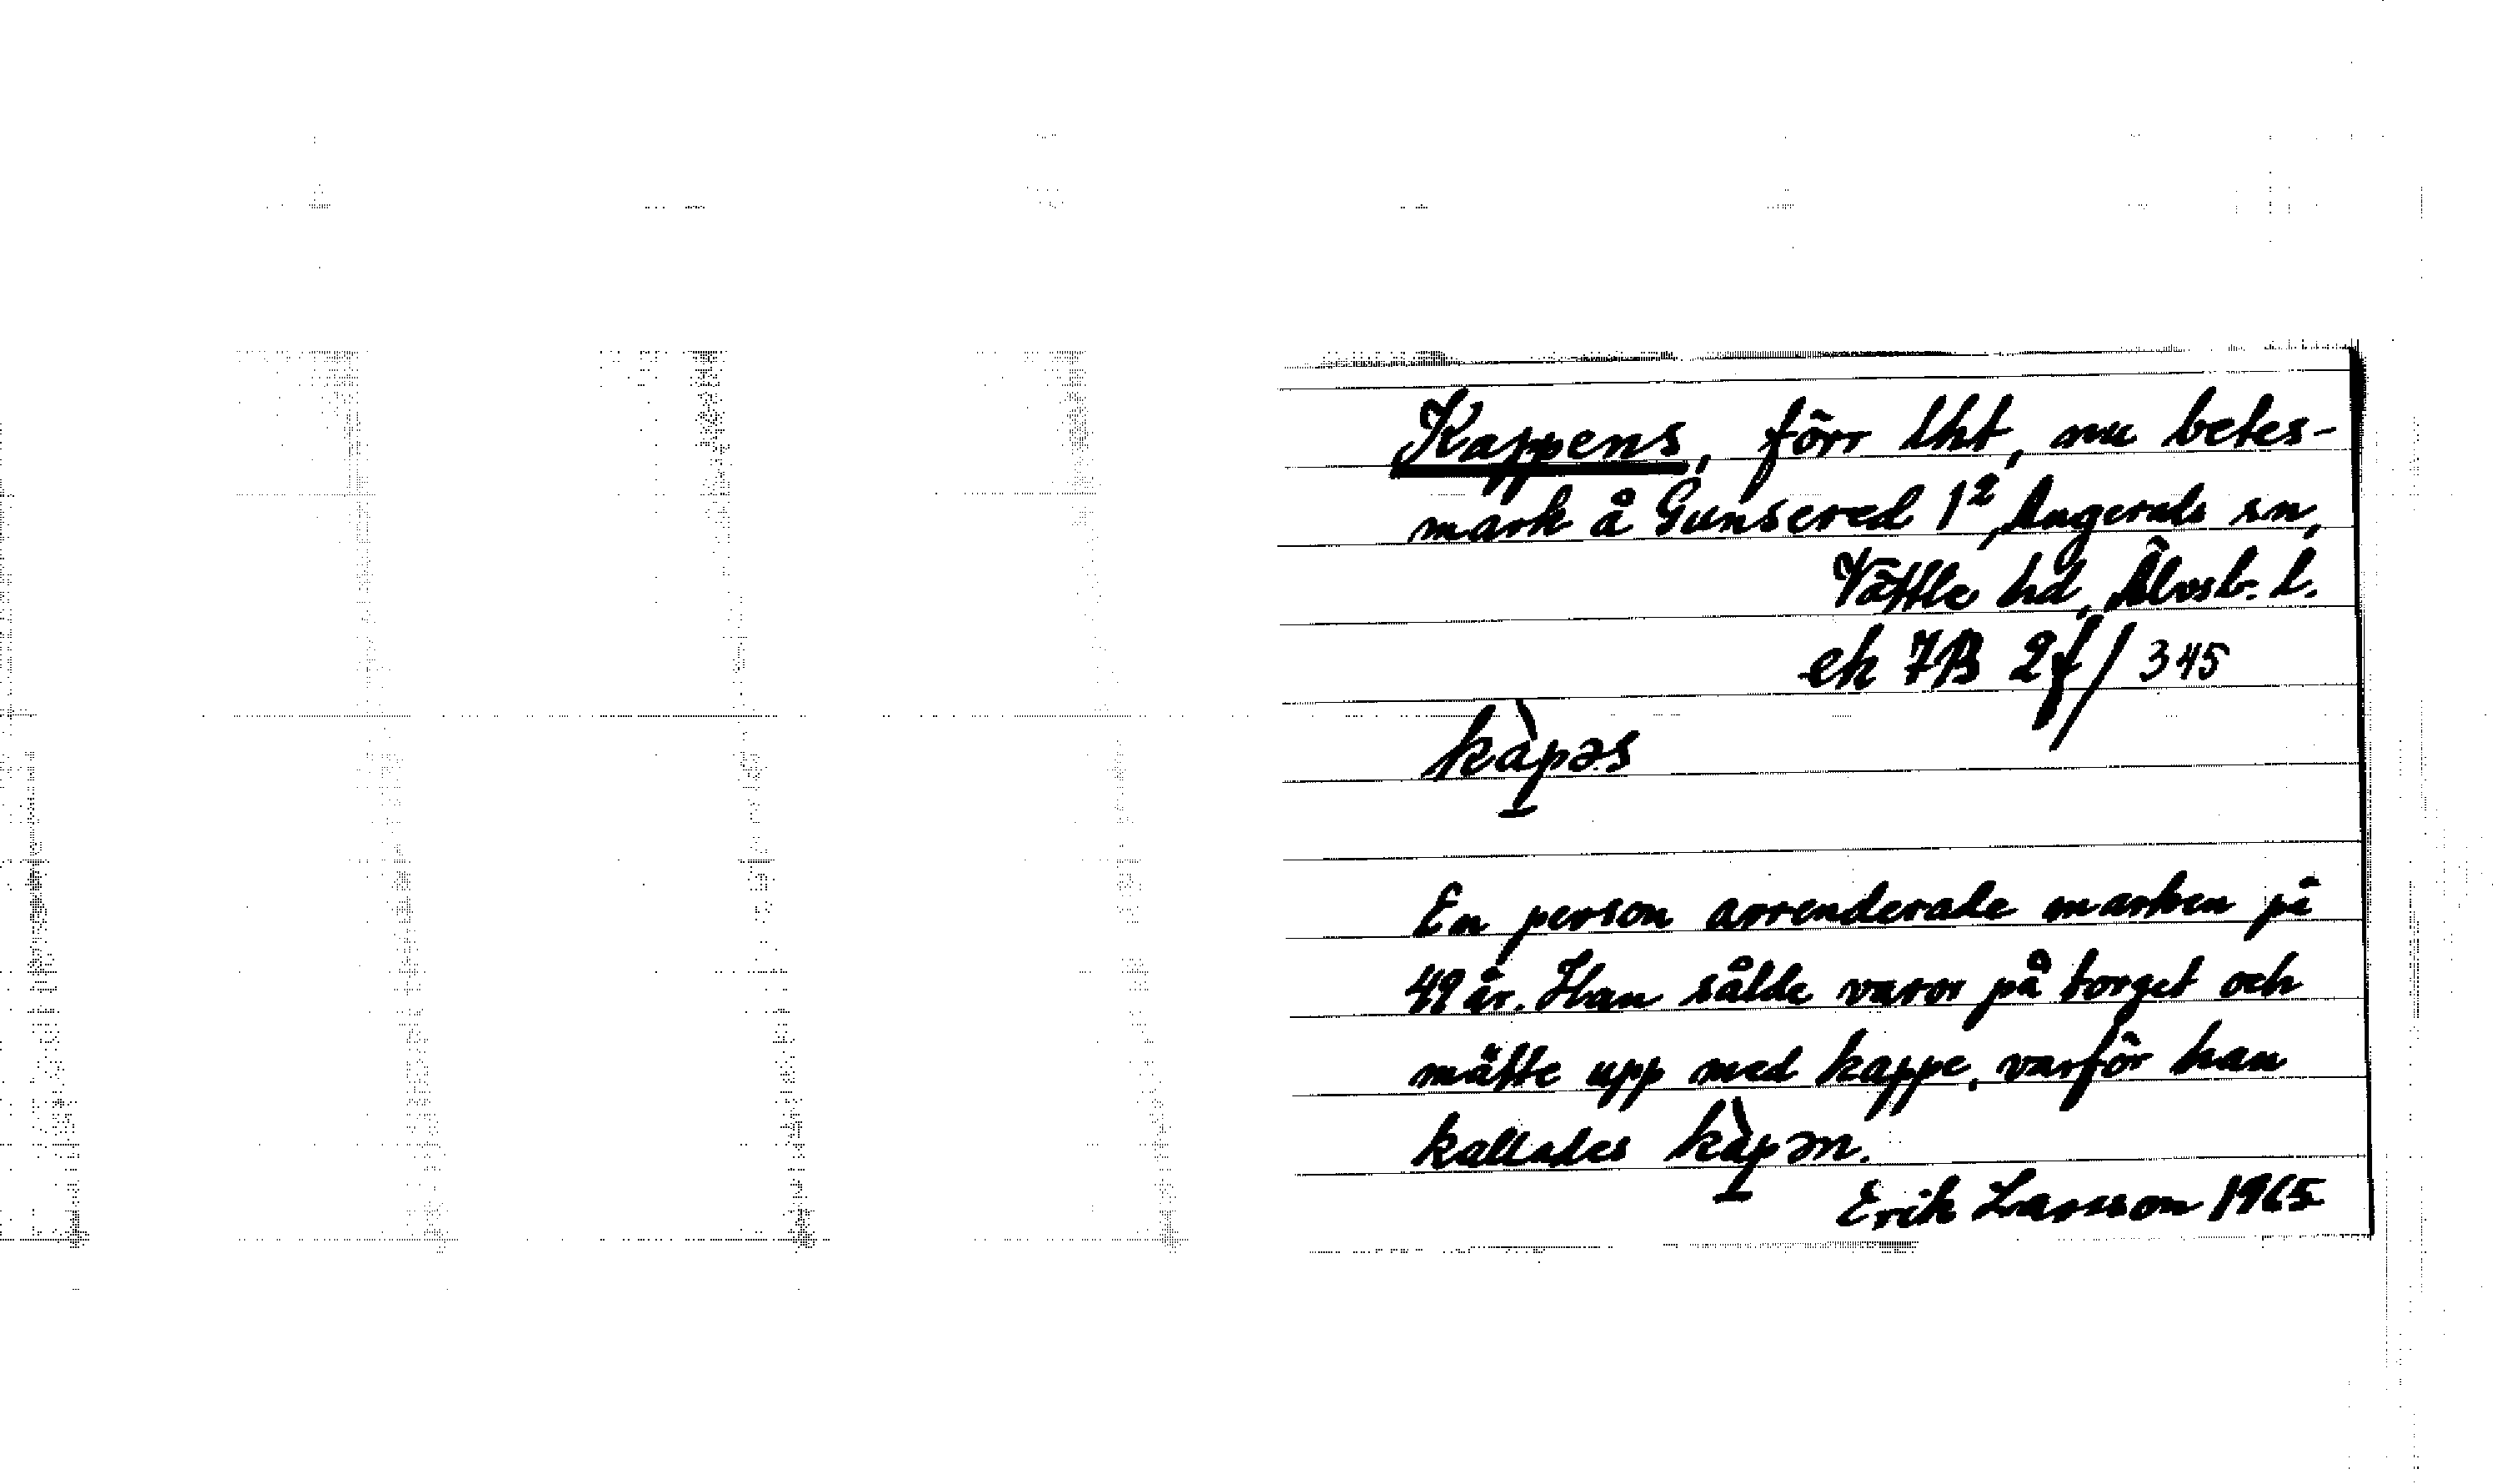 Kappens, förr lht, nu betes-
mark å Gunsered 1², Angereds sn,
Vättle hd, Älvsb. l.
ek 7B 2f/345
kàpəs
En person arrenderade marken på
49 år. Han sålde varor på torget och
mätte upp med kappe, varför han
kallades kàpən.
Erik Larsson 1965